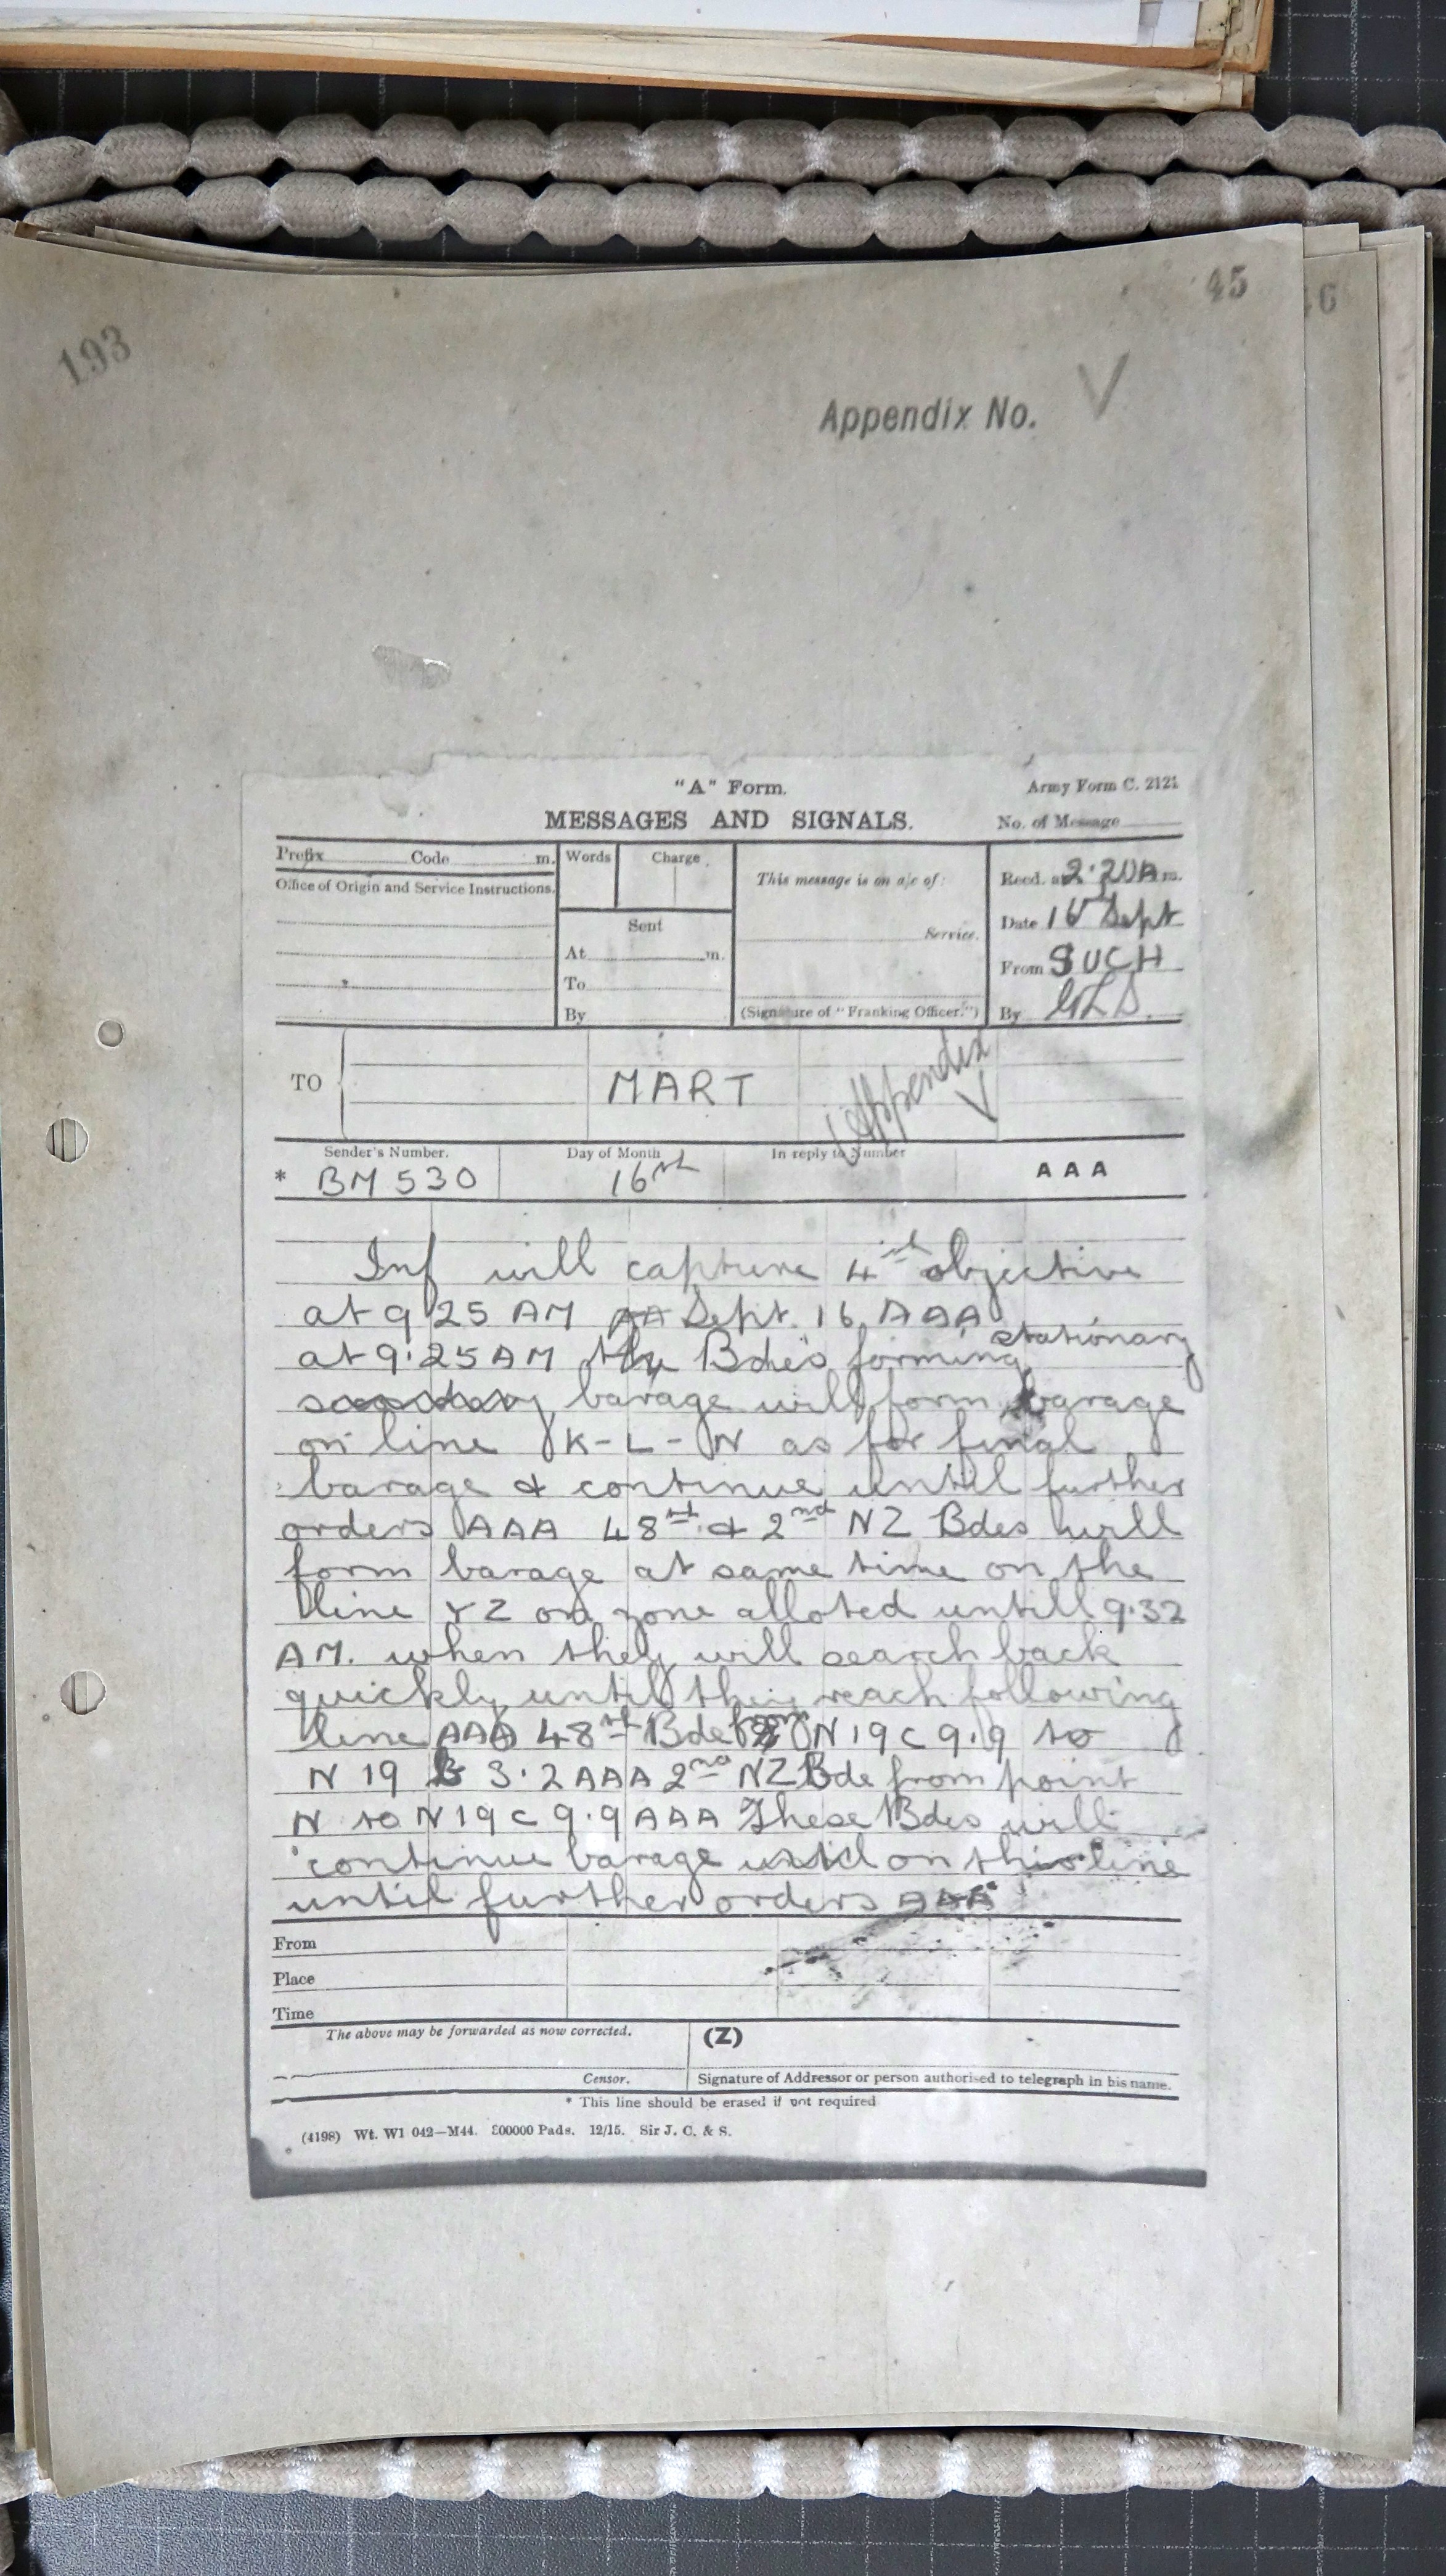 45
46
193
Appendix No. V
"A" Form.
Army Form C. 2121
MESSAGES AND SIGNALS.
No. of Message
Prefix Code m.
Words Charge
This message is on a/c of:
Recd. at 2.20 A m.
Office of Origin and Service Instructions.
Sent
Date 16 Sept
Service.
At m.
From SUCH
To
By
(Signature of "Franking Officer.")
By
TO
MART
Appendix V
Sender's Number.
Day of Month
In reply to Number
* BM 530
16th
AAA
Inf will capture 4th objective
at 9 25 AM Sept. 16 AAA
at 9.25 AM the Bdes forming stationary
barage will form barage
on line K-L-N as for final
barage & continue until further
orders AAA 48th & 2nd NZ Bdes will
form barage at same time on the
line YZ on zone alloted untill 9.32
AM. when they will search back
quickly until they reach following
line AAA 48th Bde from N 19 C 9.9 to
N 19 B 3.2 AAA 2nd NZ Bde from point
N to N 19 C 9.9 AAA These Bdes will
continue barage on this line
until further orders AAA
From
Place
Time
The above may be forwarded as now corrected.
(Z)
Censor.
Signature of Addressor or person authorised to telegraph in his name.
* This line should be erased if not required
(4198) Wt. W1 042—M44. 300000 Pads. 12/15. Sir J. C. & S.